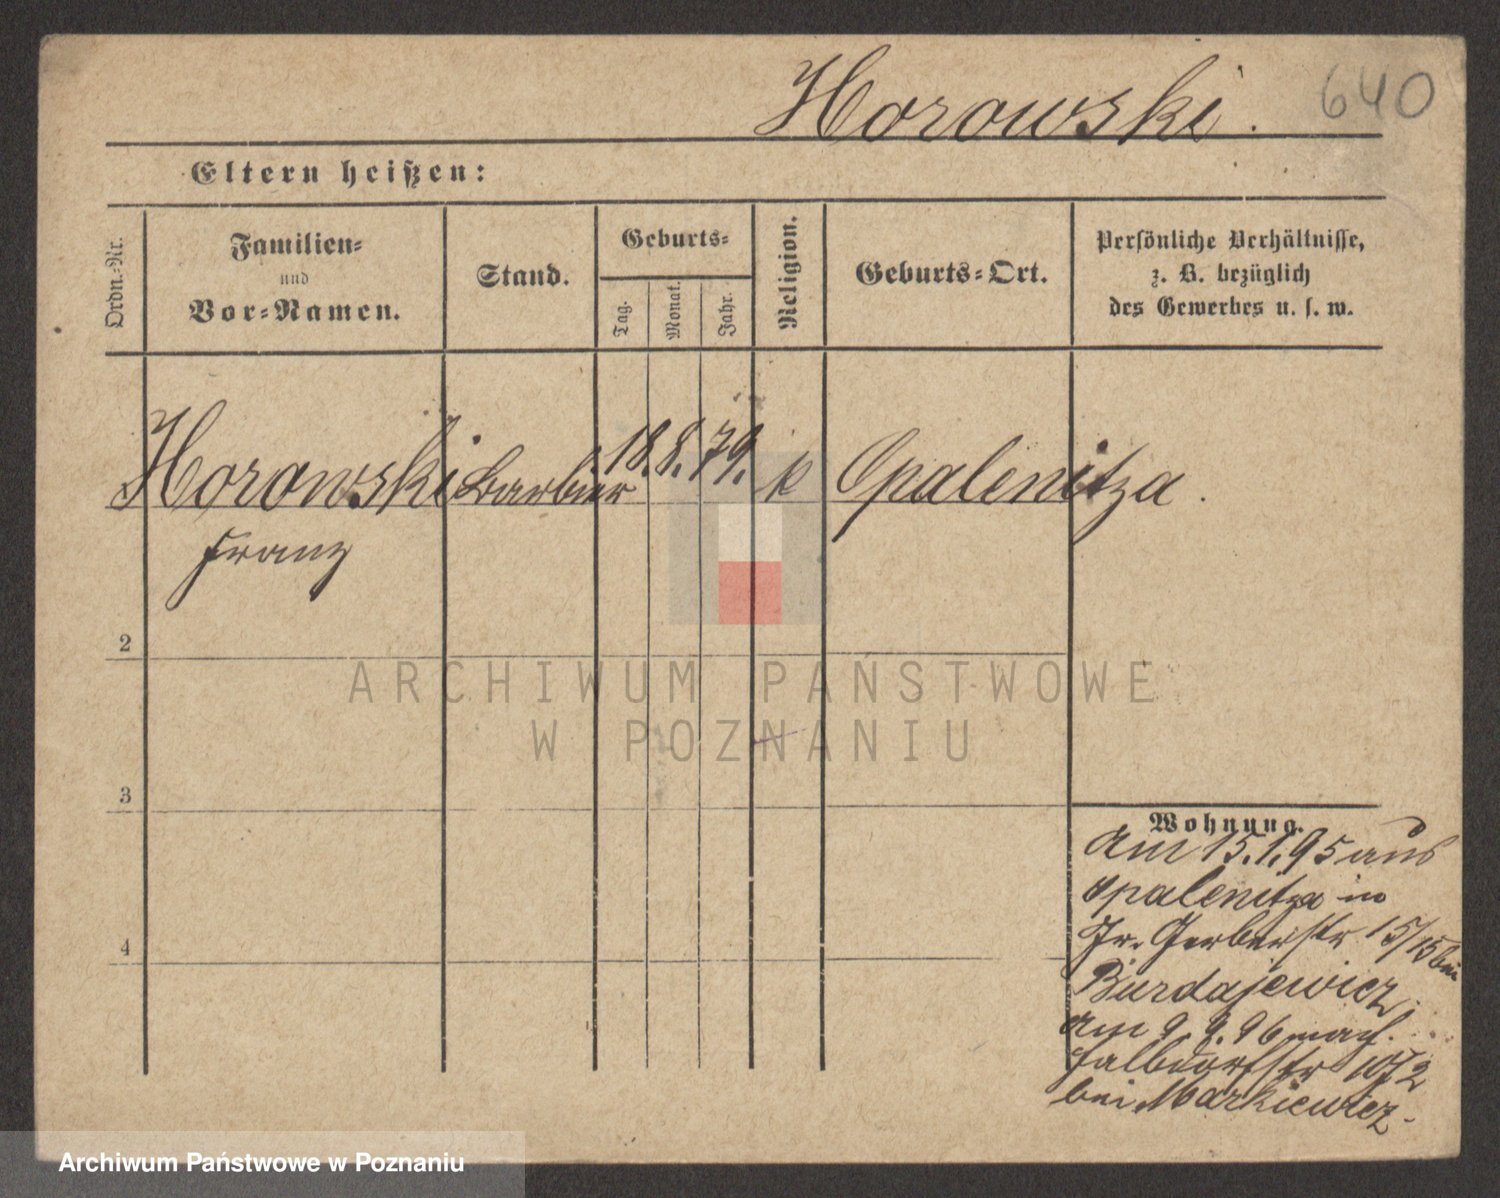 Horowski.
640
Eltern heißen:
Ordn.-Nr.
Familien-
und
Vor-Namen.
Stand.
Geburts-
Tag.
Monat.
Jahr.
Religion.
Geburts-Ort.
Persönliche Verhältnisse,
z. B. bezüglich
des Gewerbes u. s. w.
Horowski Barbier 18. 8. 79. k Opalenitza.
Franz
2
3
4
Wohnung.
Am 15.1.95 aus
Opalenitza in
Gr. Gerberstr 15/15 bei
Burdajewicz.
Am 9. 9. 96 nach
Halbdorfstr
bei Markiewicz.
ARCHIWUM PAŃSTWOWE
W POZNANIU
Archiwum Państwowe w Poznaniu